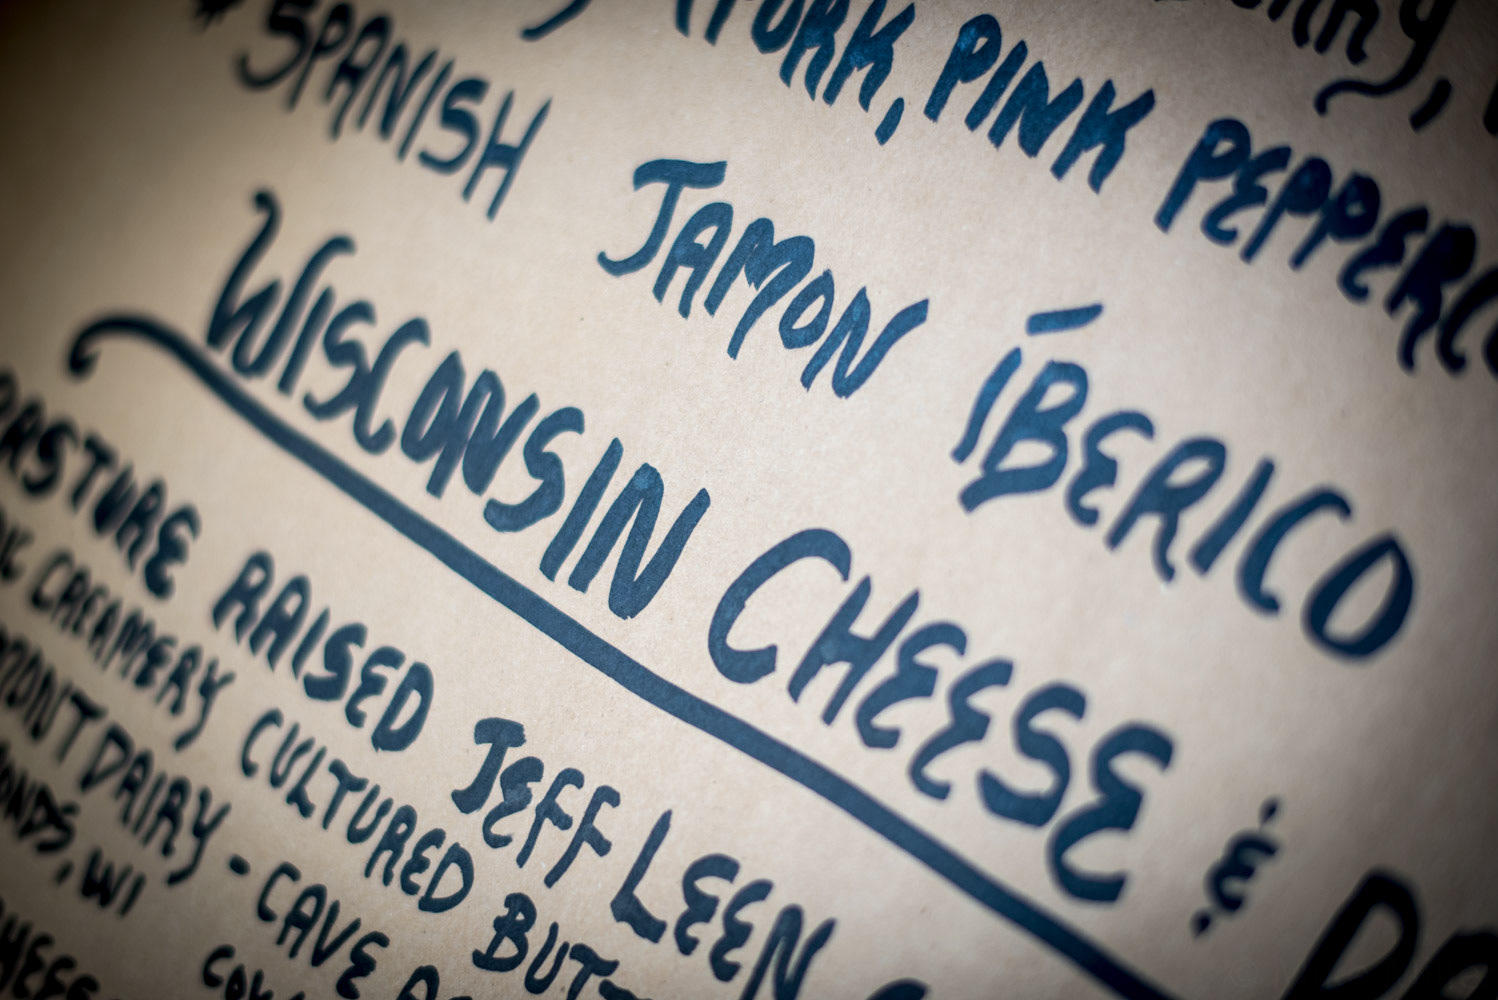 PORK, PINK PEPPERC
SPANISH JAMON ÍBERICO
WISCONSIN CHEESE & DA
PASTURE RAISED JEFF LEEN
CREAMERY CULTURED BUT
MONT DAIRY - CAVE A
ONDS, WI COW
HEESE